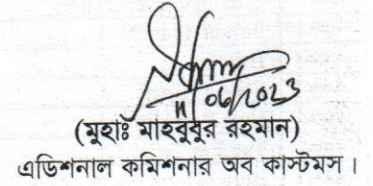 11/06/2023
(মুহাঃ মাহবুবুর রহমান)
এডিশনাল কমিশনার অব কাস্টমস।